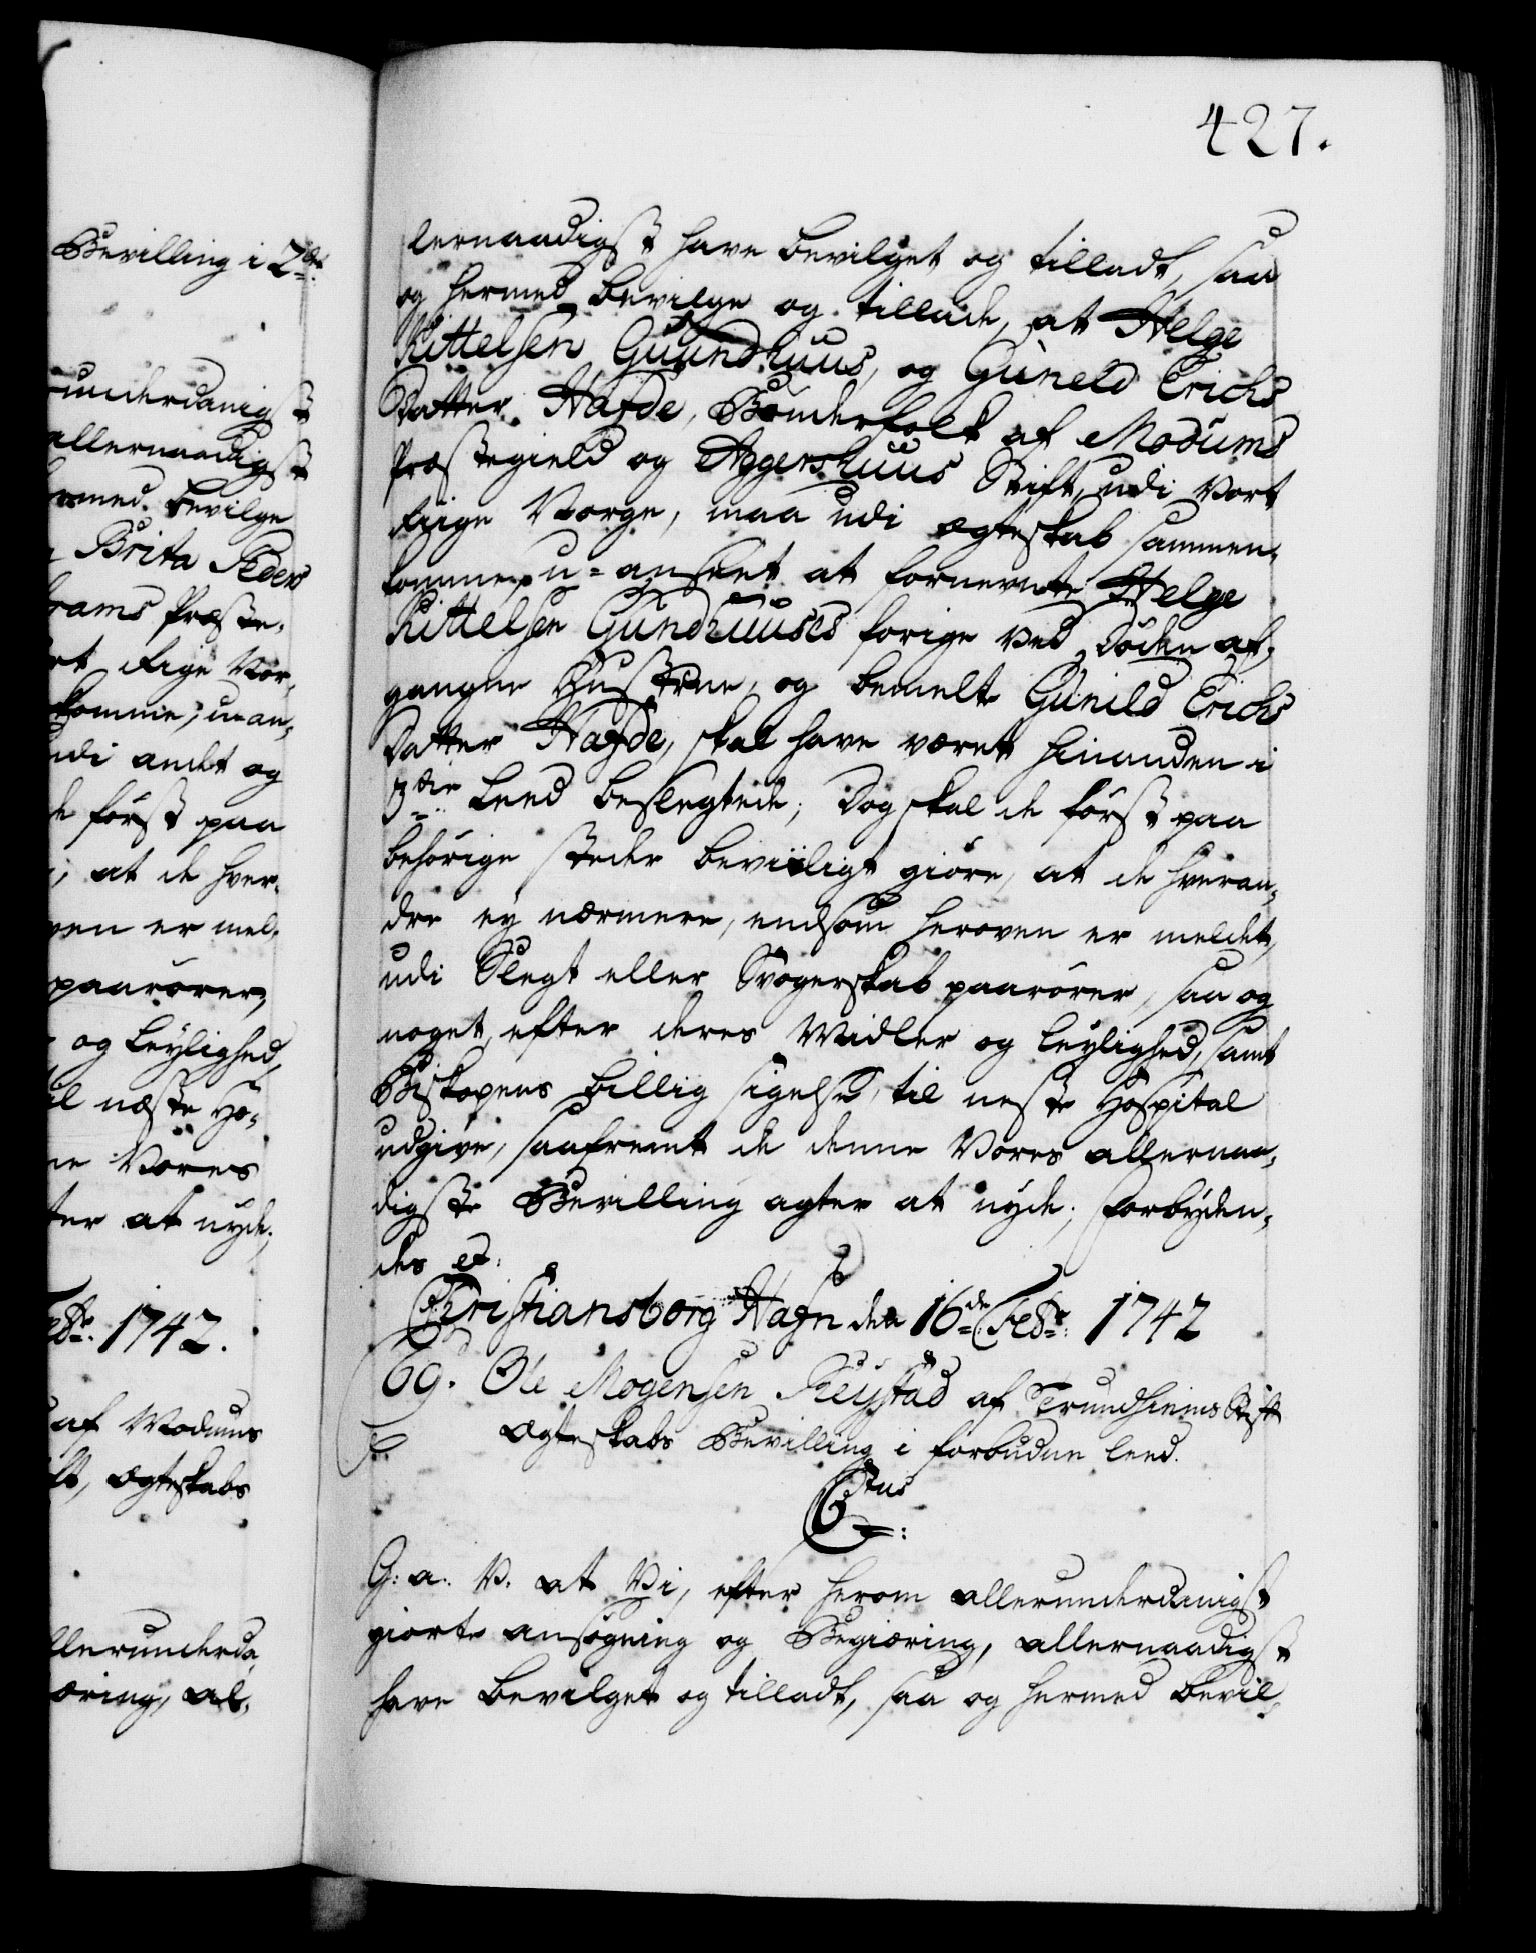 427.
Bevilling i 2det
underdanigst
allernaadigst
hermed bevilge
Brita Peders
Præste-
Rige Nor-
komme; u-an-
udi andet og
de først paa
; at de hver-
oven er mel-
paarører,
og leylighed,
til næste Ho-
ne Vores
ter at nyde,
Febr: 1742.
af Modums
ægteskabs
llerunderda-
æring, al-
lernaadigst have bevilget og tilladt, saa
og hermed bevilge og tillade, at Helge
Kittelsen Guundhuus, og Guneld Erichs
Datter Hafde, Bønderfolk af Modums
Præstegield og Aggershuus Stift, udi Vort
Riige Norge, maa udi ægteskab sammen-
komme, u-anseet at fornevnte Helge
Kittelsen Gundhuuses forige ved døden af-
gangne Hustrue, og bemelte Gunild Erichs
Datter Hafde, skal have været hinanden i
3die Leed beslegtede; Dog skal de først paa
behørige steder beviisligt giøre, at de hveran-
dre ey nærmere, end som heroven er meldet,
udi Slegt eller Svogerskab paarører, saa og
noget, efter deres Midler og leylighed, samt
Biskopens billig sigelse, til neste Hospital
udgive, saafremt de denne Vores allernaa-
digste Bevilling agter at nyde; Forbyden-
des etc:
Christiansborg Hafn den 16de Febr: 1742
69. Ole Mogensen Reystad af Trundhiems Stift
ægteskabs Bevilling i forbudne leed.
C 6tus:
G: a: V. at Vi, efter herom allerunderdanigst
giorte ansøgning og Begiæring, allernaadigst
have bevilget og tilladt, saa og hermed bevil-